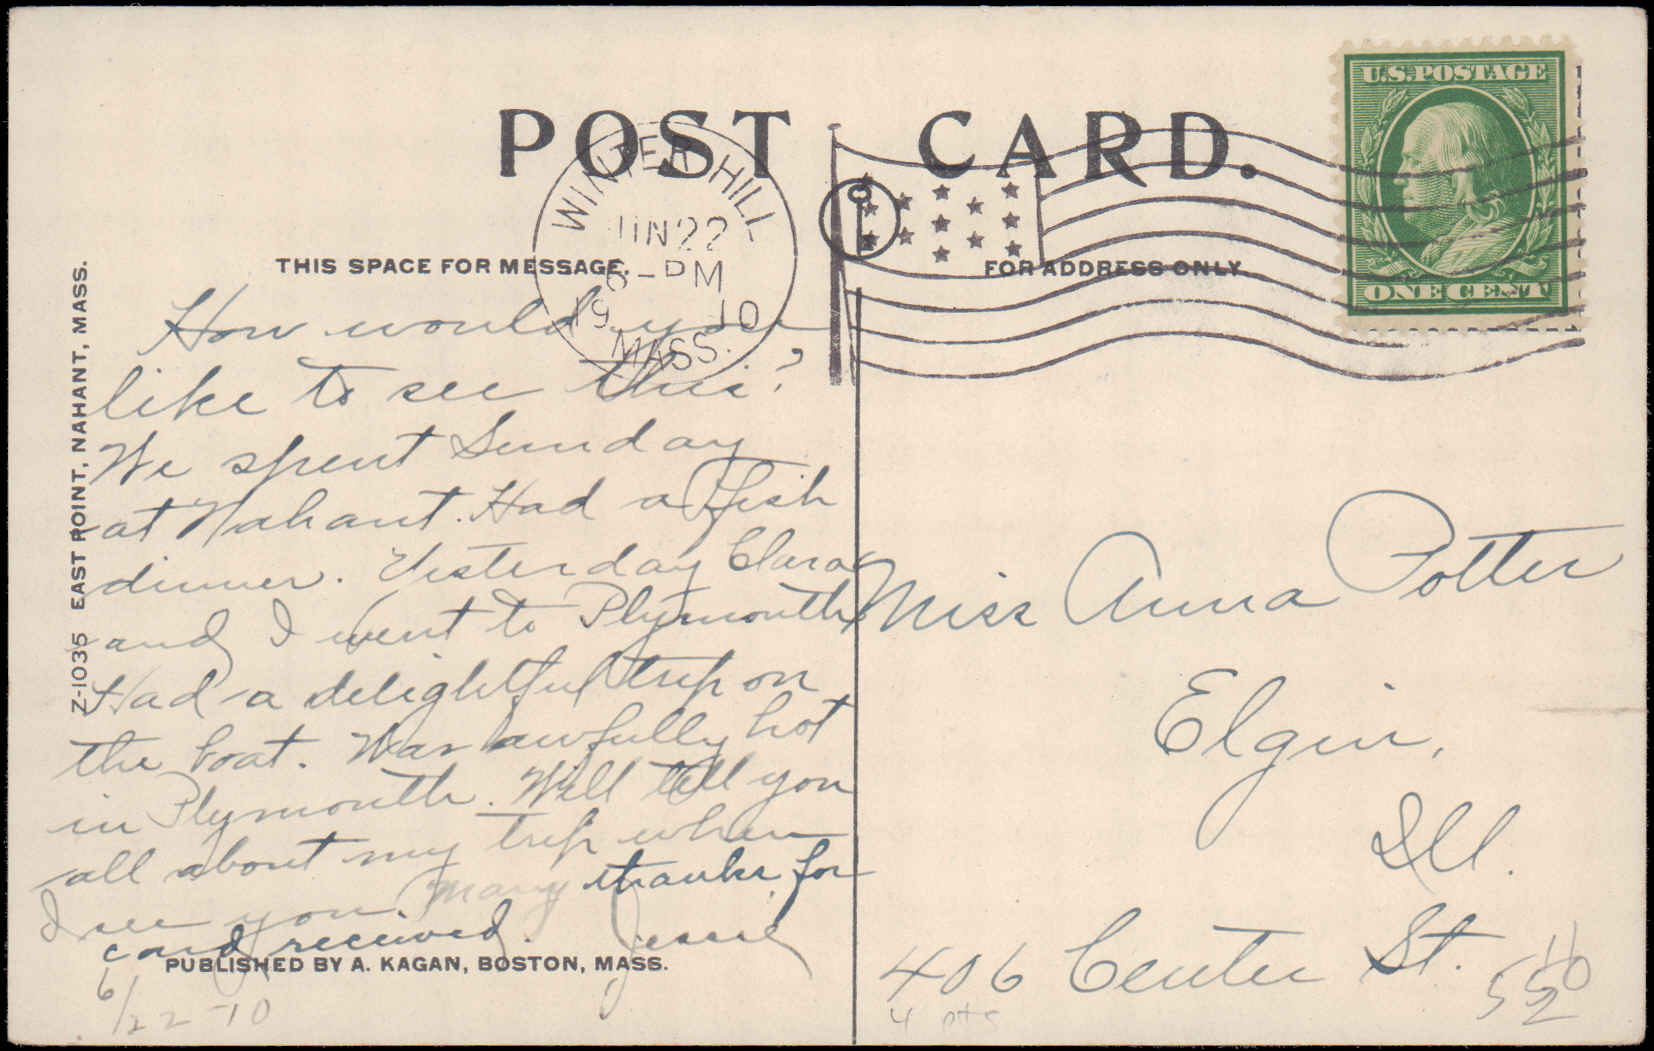 POST CARD.
U.S. POSTAGE
ONE CENT
WINTER HILL
JUN 22
6-PM
19 10
MASS.
THIS SPACE FOR MESSAGE.
FOR ADDRESS ONLY
Z-1035 EAST POINT, NAHANT, MASS.
How would you
like to see this?
We spent Sunday
at Nahant. Had a fish
dinner. Yesterday Clara
and I went to Plymouth
Had a delightful trip on
the boat. Was awfully hot
in Plymouth. Will tell you
all about my trip when
I see you. Many thanks for
card received. Jessie
PUBLISHED BY A. KAGAN, BOSTON, MASS.
6/22-10
Miss Anna Potter
Elgin,
Ill.
406 Center St.